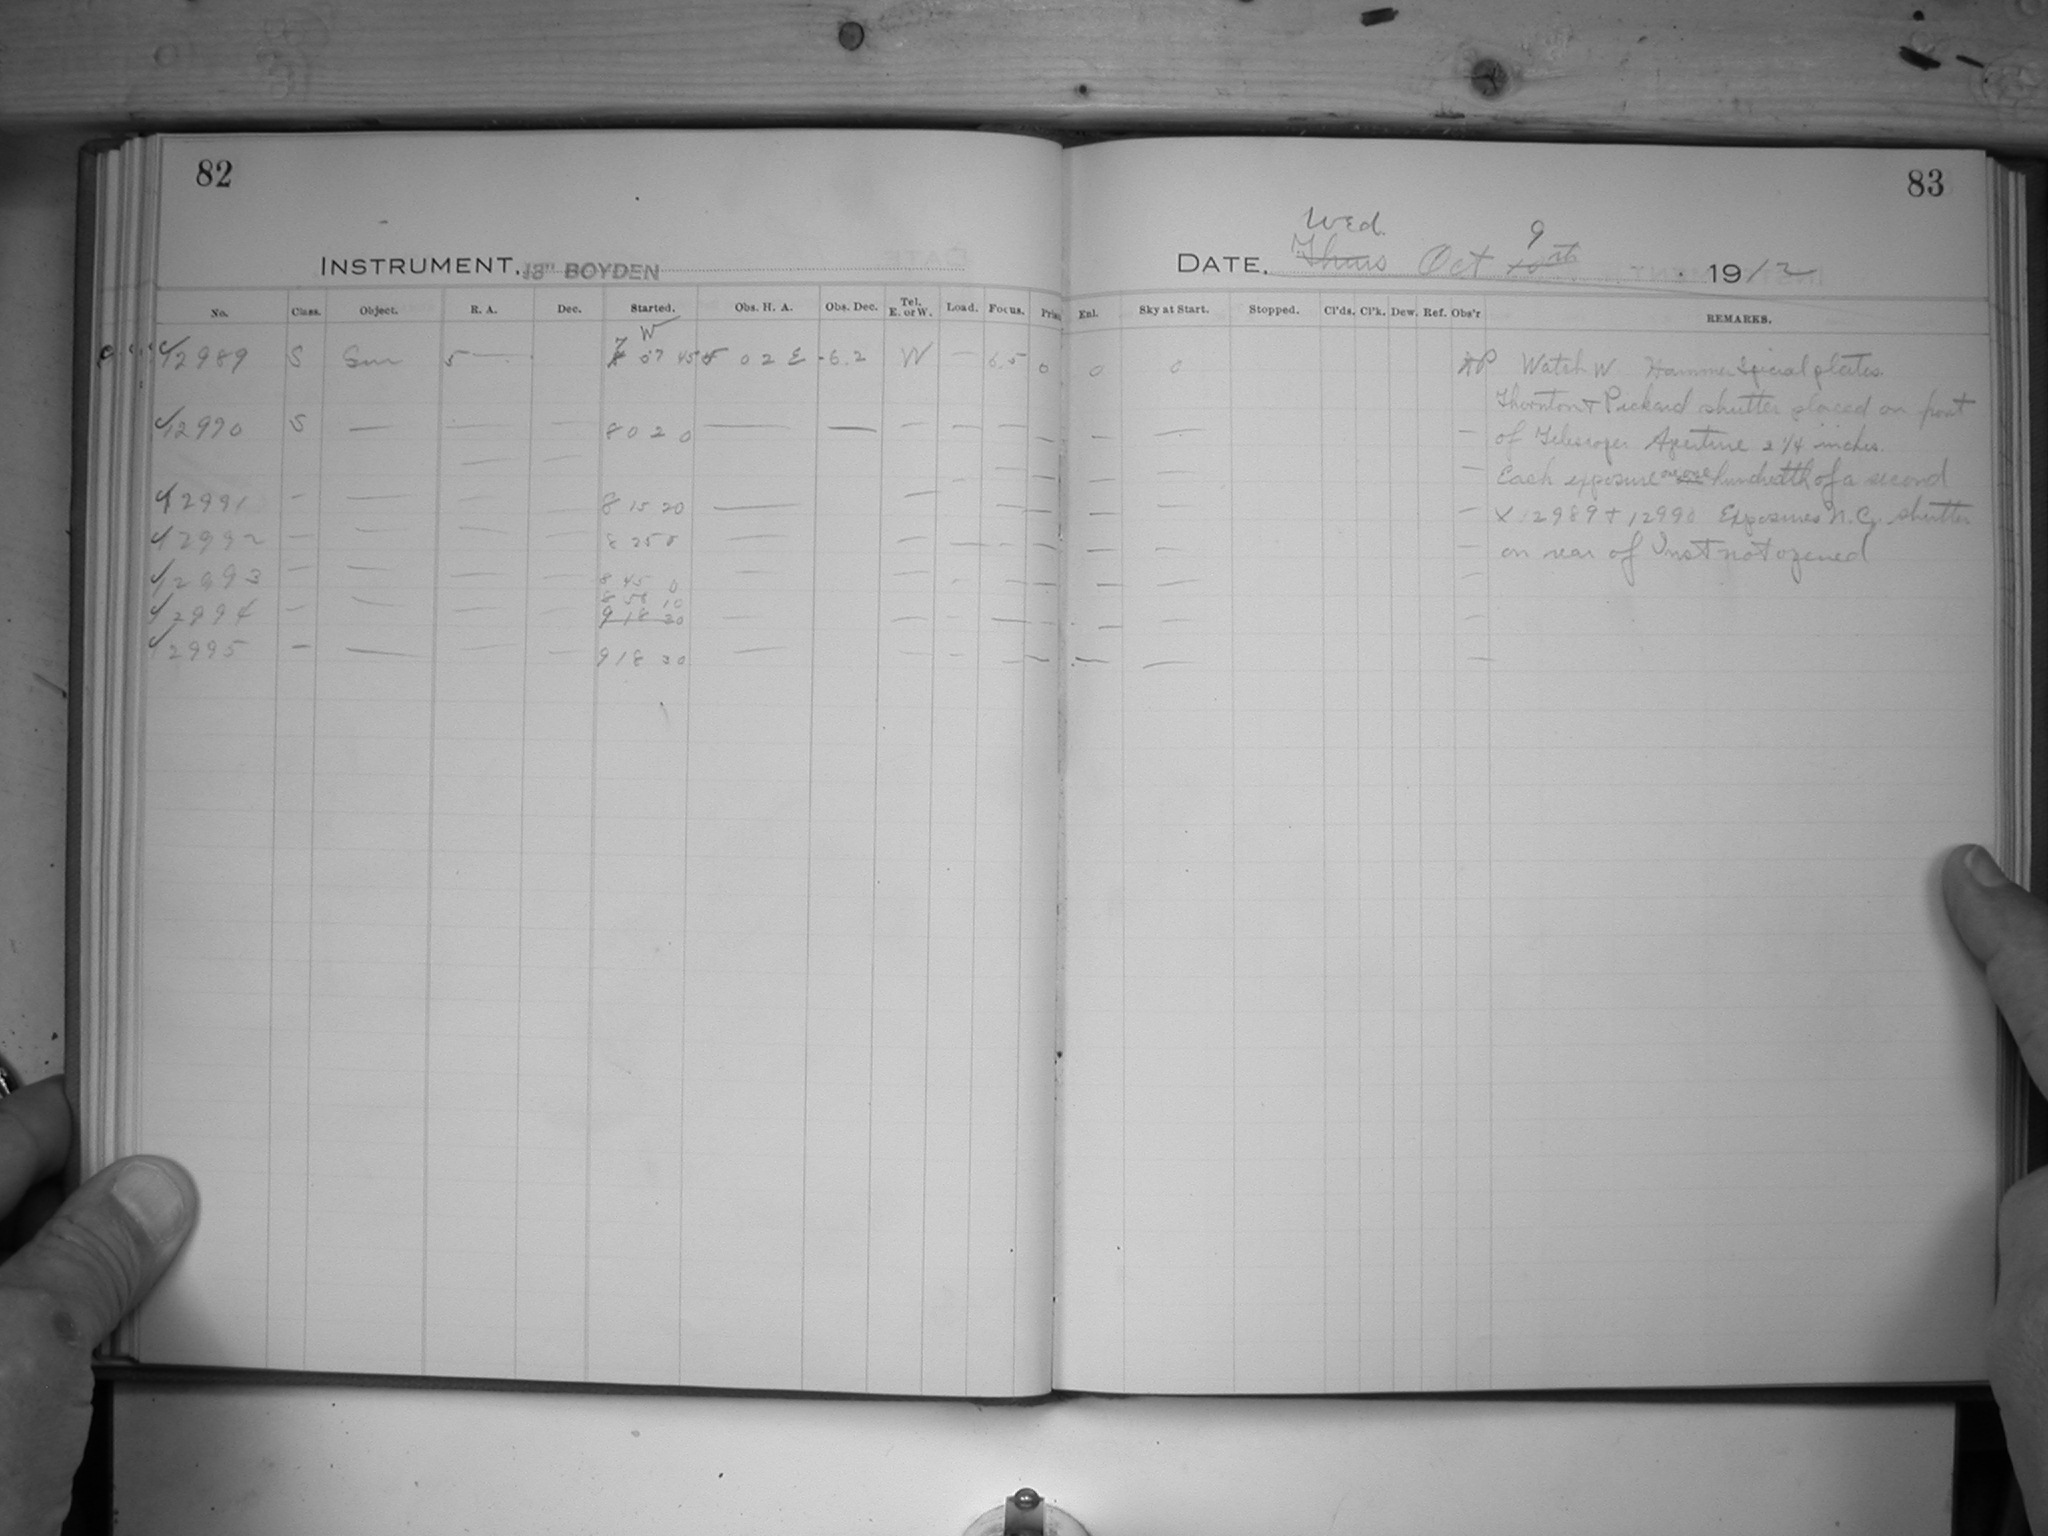 82
INSTRUMENT. 13" BOYDEN
No. Class. Object. R. A. Dec. Started. Obs. H. A. Obs. Dec. Tel. E. or W. Load. Focus. Pris
W
7
12989 S Sun 5 — 8 57 45 5 02 E -6.2 W — 6.5 0
12990 S — — — 8 02 0 — — — — —
12991 — — — — 8 15 20 — — —
12992 — — — — 8 25 0 — — — —
12993 — — — — 8 45 0 — — — —
8 58 10
12994 — — — — 9 18 20 — — — —
12995 — — — — 9 18 20 — — — —
83
Wed. 9
DATE. Thurs Oct 10th 1912
Enl. Sky at Start. Stopped. Cl'ds. Cl'k. Dew. Ref. Obs'r REMARKS.
0 0 Watch W Hammer Special plates.
Thornton & Pickard shutter placed on front
of Telescope. Aperture 2 1/4 inches.
Each exposure one hundredth of a second
X 12989 + 12990 Exposures N.G. shutter
on rear of Inst not opened